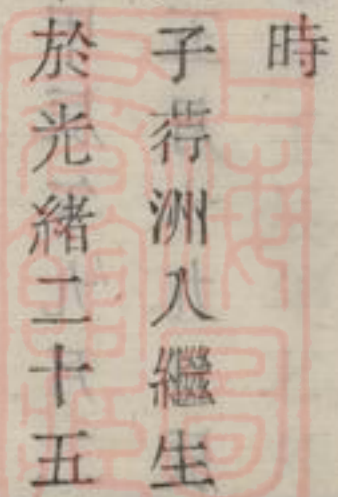 時
子荇洲入繼生
於光緒二十五